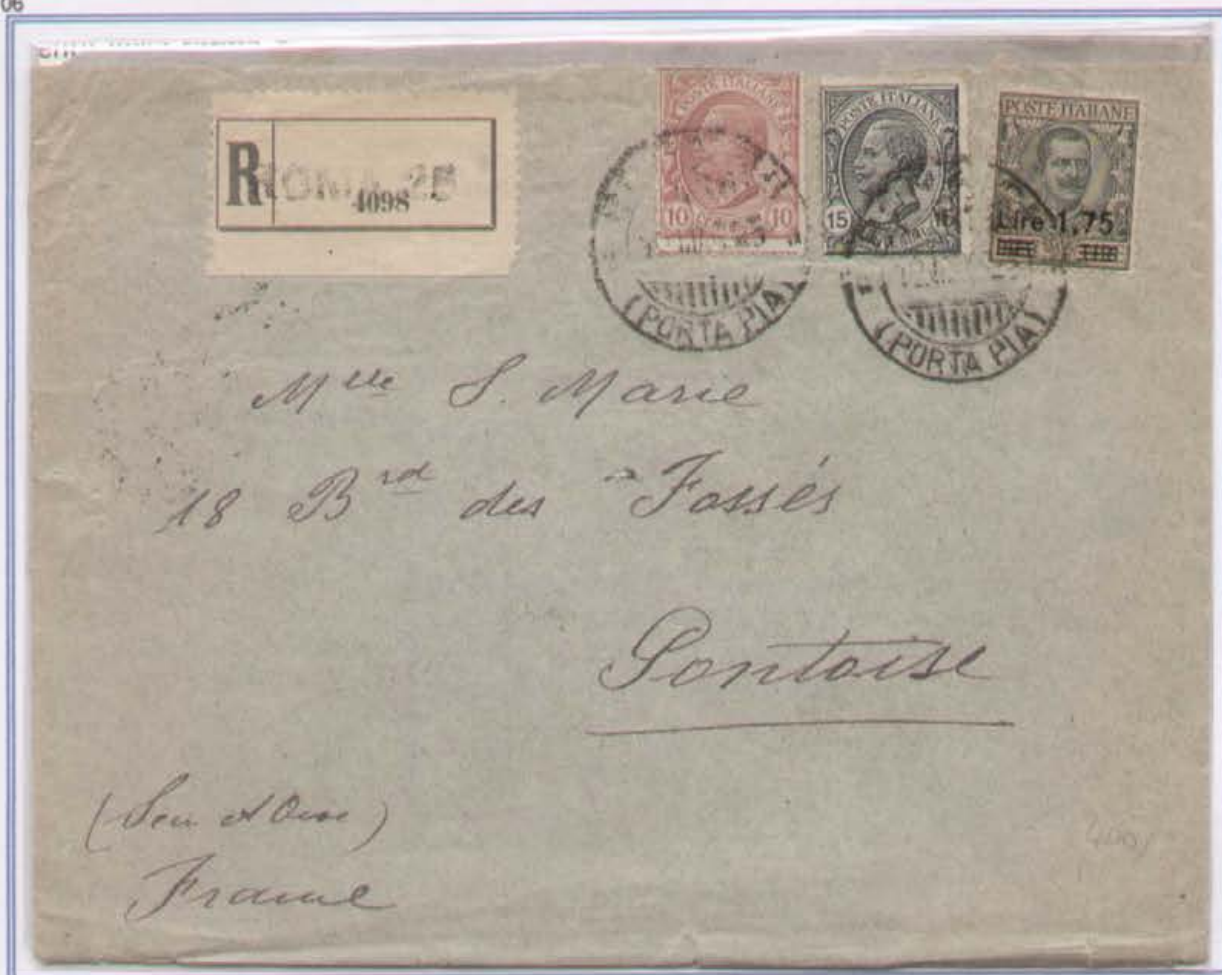 06
R ROMA 25
4098
POSTE ITALIANE
10 10
POSTE ITALIANE
15
POSTE ITALIANE
Lire 1,75
(PORTA PIA)
(PORTA PIA)
Mlle S. Marie
18 Brd des Fossés
Pontoise
(Seine et Oise)
France